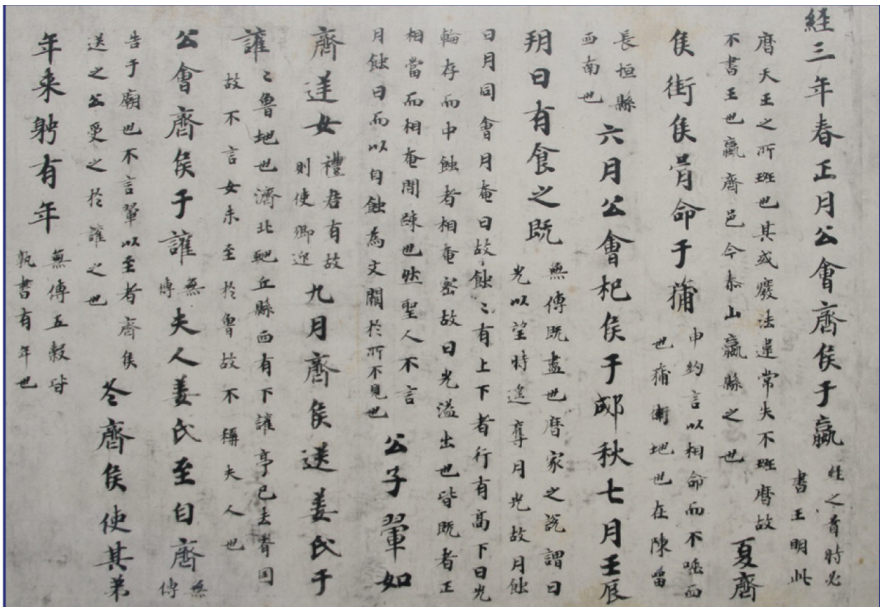 経三年春正月公會齊侯于嬴
経之首時必
書王明此
暦天王之所班也其或廢法違常失不班暦故
不書王也嬴齊邑今泰山嬴縣之也
夏齊
侯衛侯胥命于蒲
申約言以相命而不歃血
也蒲衛地也在陳留
長垣縣
西南也
六月公會杞侯于郕秋七月壬辰
朔日有食之既
無傳既盡也暦家之説謂日
光以望時遙奪月光故月蝕
日月同會月奄日故蝕〻有上下者行有高下日光
輪存而中蝕者相奄密故日光溢出也皆既者正
相當而相奄間疎也然聖人不言
月蝕日而以自蝕為文闕於所不見也
公子翬如
齊逆女
禮君有故
則使卿逆
九月齊侯送姜氏于
讙
〻魯地也濟北虵丘縣西有下讙亭已去齊國
故不言女未至於魯故不稱夫人也
公會齊侯于讙
無
傳
夫人姜氏至自齊
無
傳
告于廟也不言翬以至者齊侯
送之公受之於讙之也
冬齊侯使其弟
年来聘有年
無傳五穀皆
熟書有年也